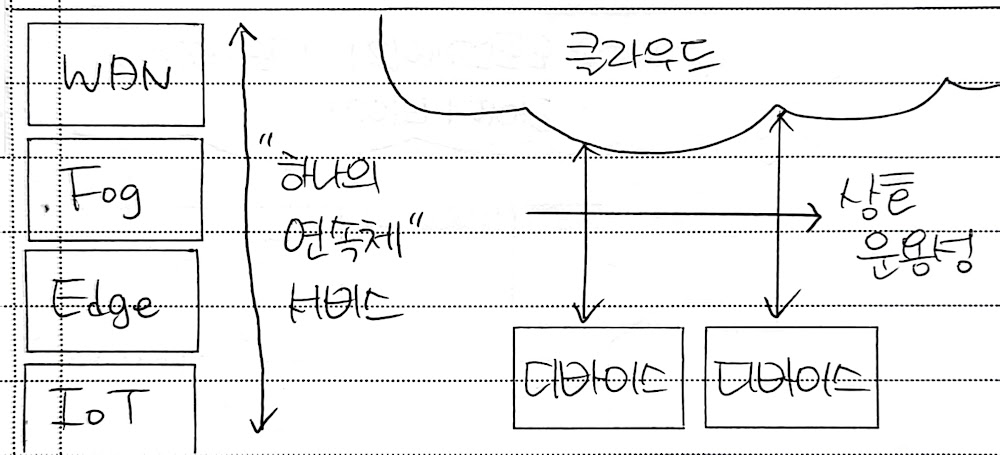 WAN
Fog
Edge
IoT
"하나의
연속체"
서비스
클라우드
상호
운용성
디바이스
디바이스